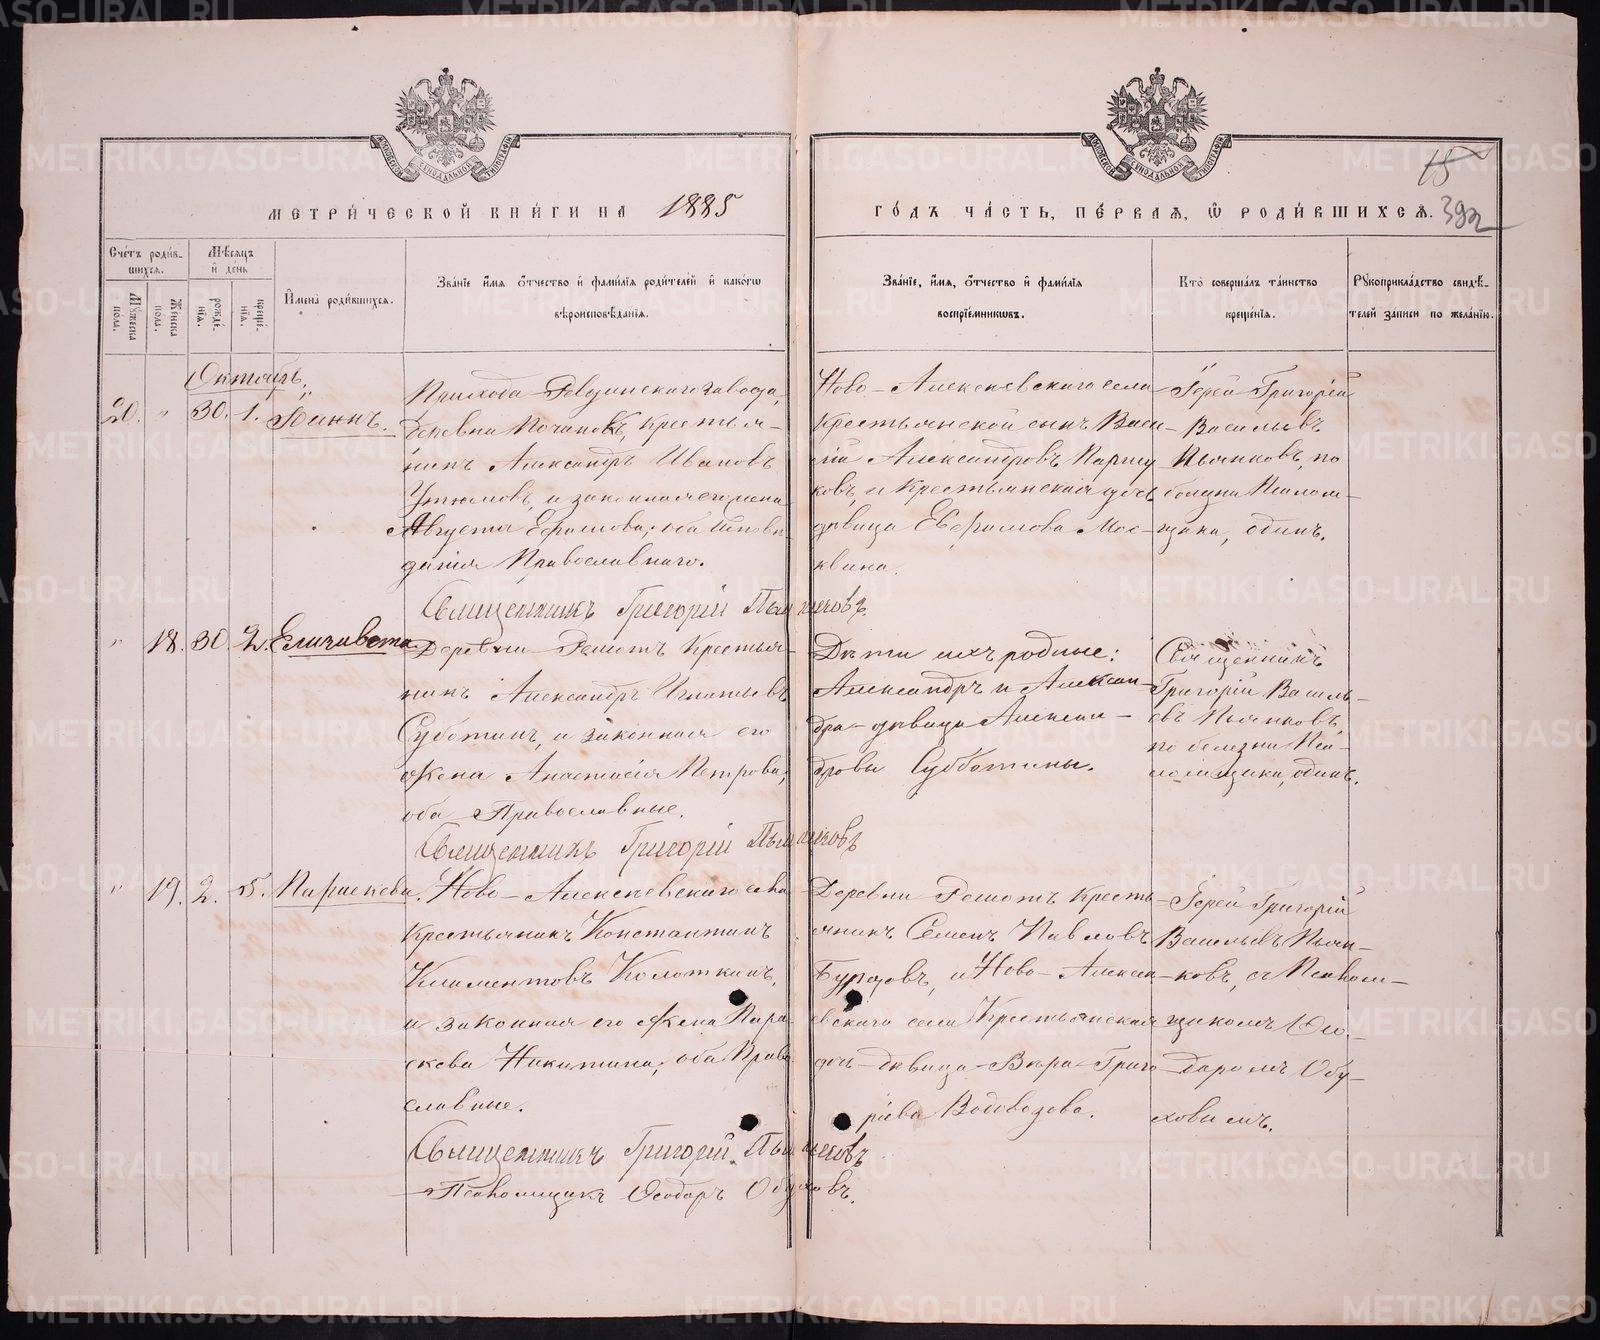 МЕТРИ́ЧЕСКОЙ КНИ́ГИ НА 1885
ГО́ДЪ ЧА́СТЬ, ПЕ́РВАЯ, Ѡ РОДИ́ВШИХСЯ.
15
392
Сче́тъ роди́в-
шихся.
Мѣ́сяцъ
и҆ день
Му́жеска
пола.
Же́нска
пола.
рожде́-
нїя.
креще́-
нїя.
И҆мена̀ роди́вшихся.
Зва́нїе и҆мя ѻ҆́тчество и҆ фами́лїя роди́телей и҆ како́гѡ
вѣроисповѣ́данїя.
Зва́нїе, и҆́мя, ѻ҆́тчество и҆ фами́лїя
воспрїе́мникѡвъ.
Кто̀ соверша́лъ та́инство
креще́нїя.
Рꙋкоприкла́дство свидѣ́-
телей записи по жела́нїю.
Октябрь.
20. " 30. 1. Іоаннъ.
Прихода Ревдинскаго завода,
деревни Починокъ, крестья-
нинъ Александръ Ивановъ
Утюмовъ, и законная его жена
Августа Ефимова; оба исповѣ-
данія Православнаго.
Священникъ Григорій Пьянковъ.
Ново-Алексѣевскаго села
крестьянской сынъ Васи-
лій Александровъ
ковъ, и крестьянская дочь
дѣвица Ефимова Мос-
квина.
Іерей Григорій
Васильевъ
Пьянковъ, по
болѣзни Псалом-
щика, одинъ.
" 18. 30. 2. Елизавета.
Деревни Решотъ крестья-
нинъ Александръ Игнатьевъ
Суботинъ, и законная его
жена Анастасія Петрова;
оба Православные.
Священникъ Григорій Пьянковъ
Дѣти ихъ родные:
Александръ и Алексан-
дра-дѣвица Алексан-
дровы Субботины.
Священникъ
Григорій Василь-
евъ Пьянковъ,
по болезни Пса-
ломщика, одинъ.
" 19. 2. 5. Параскева.
Ново-Алексѣевскаго села
крестьянинъ Константинъ
Климентовъ Колоткинъ,
и законная его жена Пара-
скева Никитина; оба Право-
славные.
Священникъ Григорій Пьянковъ
Псаломщикъ Ѳеодоръ Обуховъ.
Деревни Решотъ кресть-
янинъ Семенъ Павловъ
Бурдовъ, и Ново-Алексѣ-
евскаго села Крестьянская
дочь-дѣвица Вѣра Григо-
рьева Водовозова.
Іерей Григорій
Васильевъ Пьян-
ковъ, съ Псалом-
щикомъ Ѳео-
доромъ Обу-
ховымъ.
МОСКОВСКОЙ СѴНОДАЛЬНОЙ ТИПОГРАФІИ
МОСКОВСКОЙ СѴНОДАЛЬНОЙ ТИПОГРАФІИ
METRIKI.GASO-URAL.RU